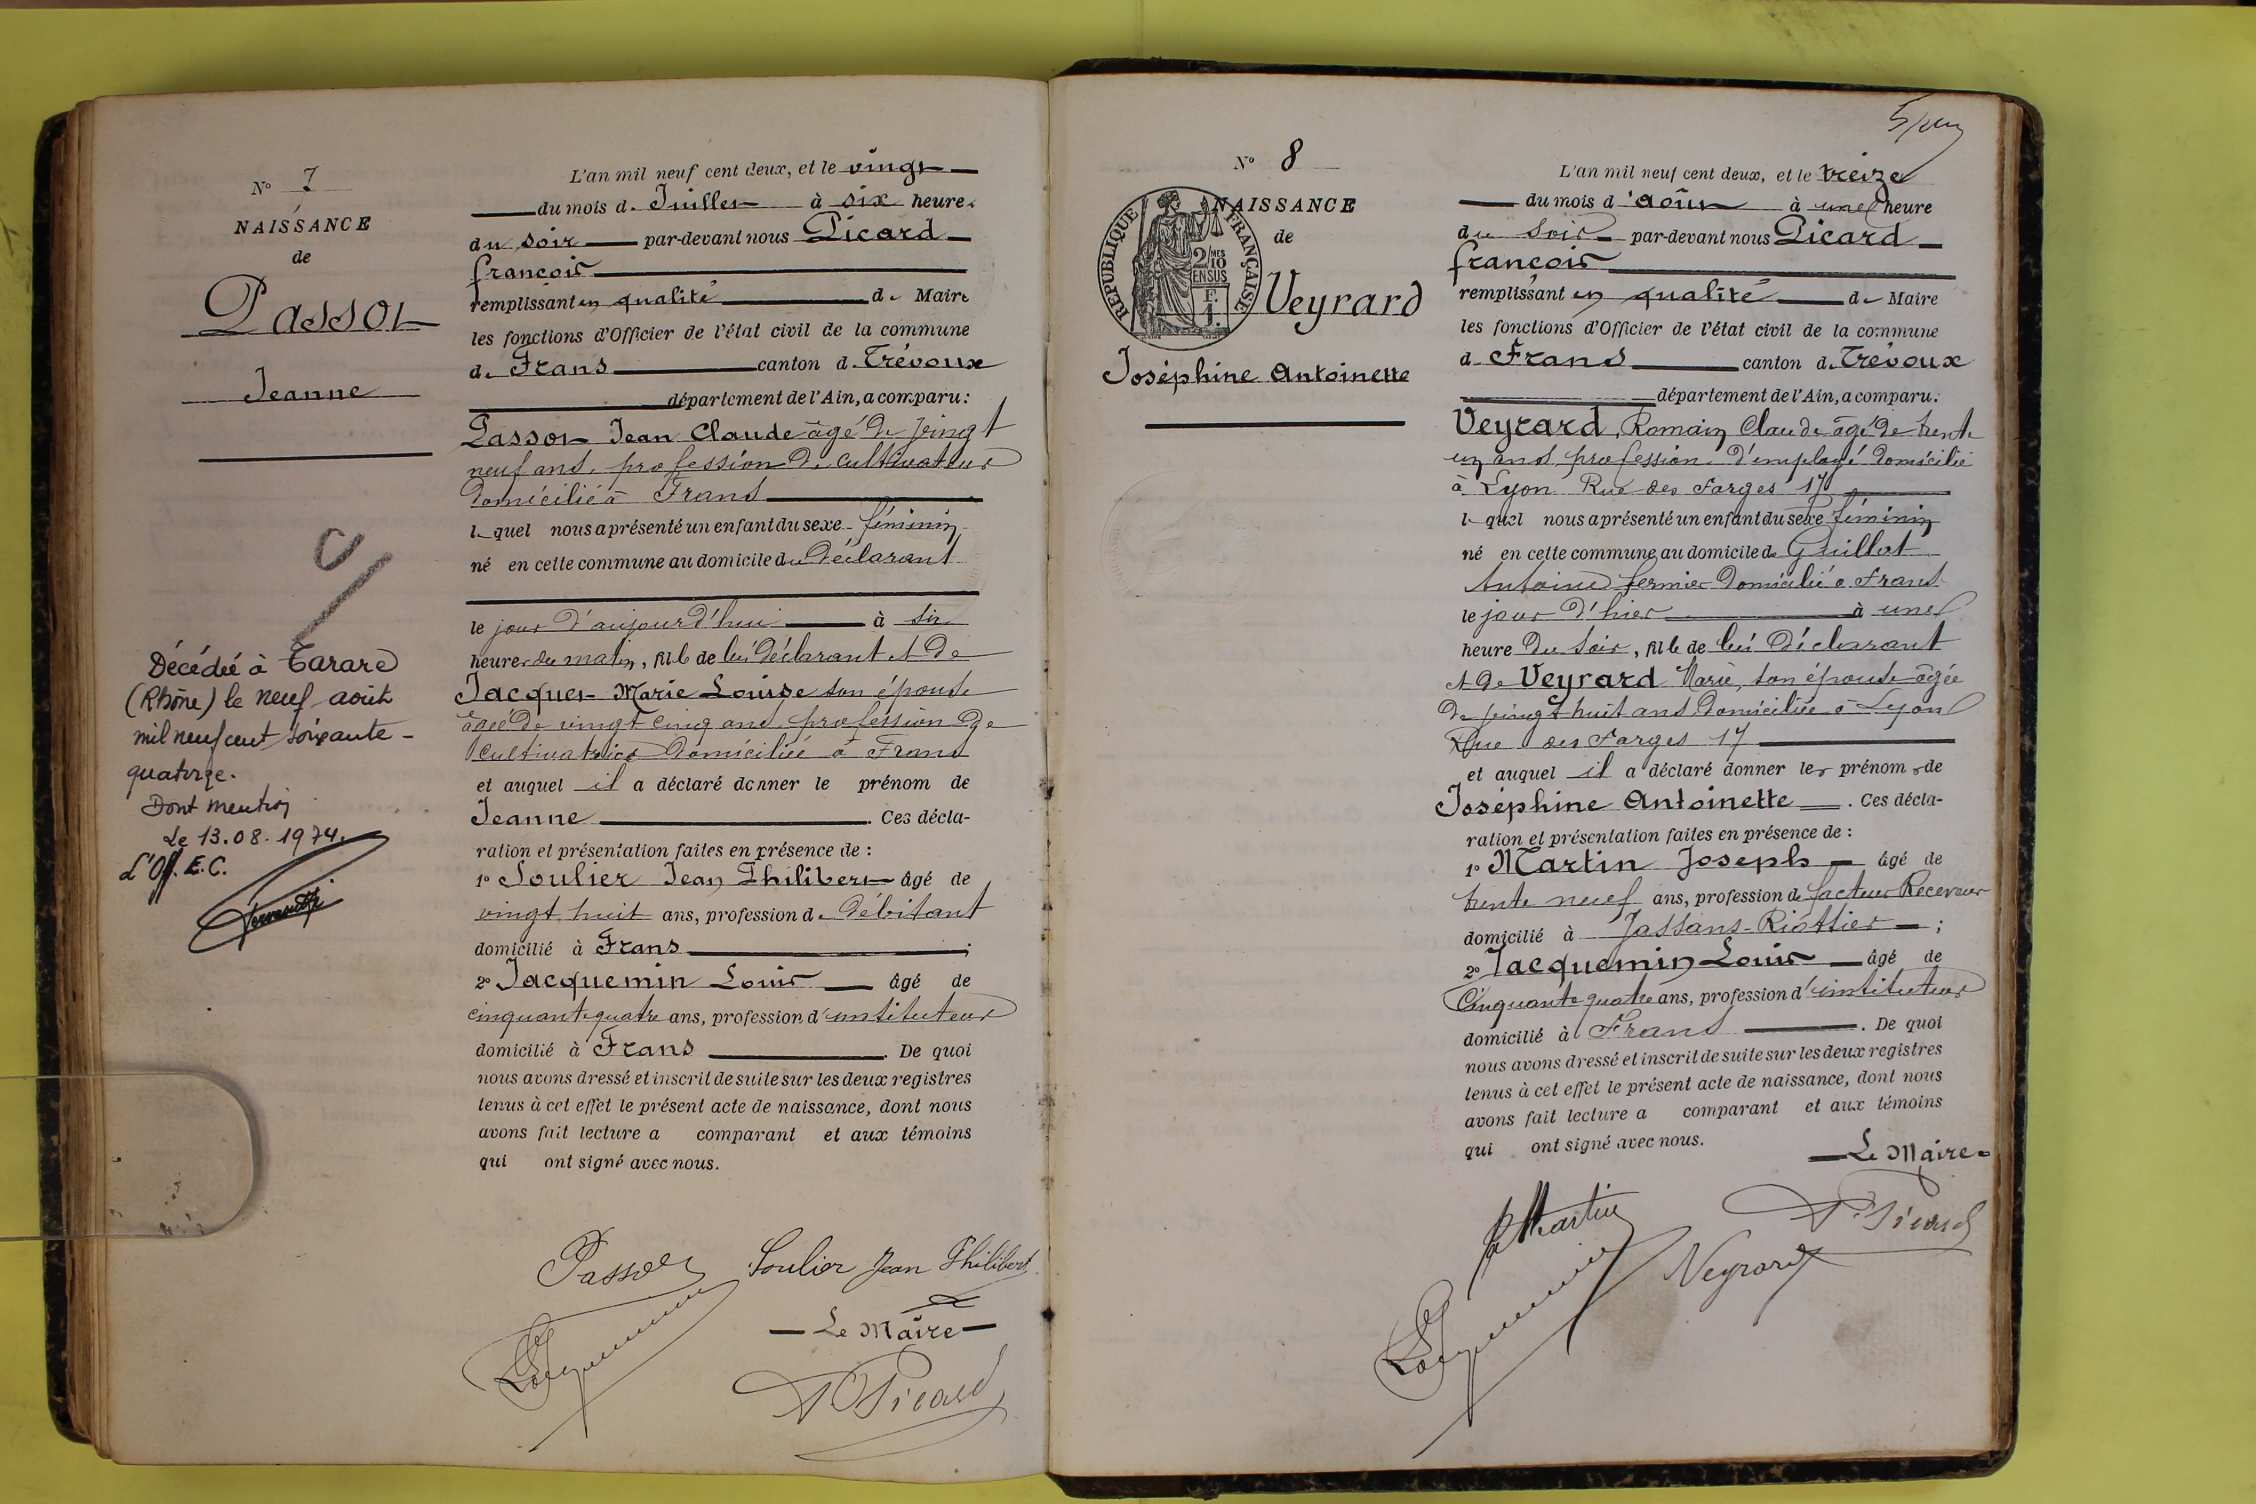 N° 7
NAISSANCE
de
Passot
Jeanne
Décédée à Tarare
(Rhône) le neuf août
mil neuf cent soixante-
quatorze.
Dont mention
Le 13.08.1974.
L'Off. E.C.
L'an mil neuf cent deux, et le vingt
du mois de Juillet à six heures
du soir par-devant nous Picard
françois
remplissant en qualité de Maire
les fonctions d'Officier de l'état civil de la commune
de Frans canton de Trévoux
département de l'Ain, a comparu:
Passot Jean Claude âgé de vingt
neuf ans, profession de cultivateur
domicilié à Frans
lequel nous a présenté un enfant du sexe féminin
né en cette commune au domicile du déclarant
le jour d'aujourd'hui à six
heures du matin, fille de lui déclarant et de
Jacquet Marie Louise son épouse
âgée de vingt cinq ans profession de
cultivatrice domiciliée à Frans
et auquel il a déclaré donner le prénom de
Jeanne . Ces décla-
ration et présentation faites en présence de :
1° Soulier Jean Philibert âgé de
vingt huit ans, profession de débitant
domicilié à Frans ;
2° Jacquemin Louis âgé de
cinquante quatre ans, profession d'instituteur
domicilié à Frans . De quoi
nous avons dressé et inscrit de suite sur les deux registres
tenus à cet effet le présent acte de naissance, dont nous
avons fait lecture a comparant et aux témoins
qui ont signé avec nous.
Passot Soulier Jean Philibert
Jacquemin
Le Maire
F. Picard
N° 8
NAISSANCE
de
RÉPUBLIQUE FRANÇAISE
2/10 MES
EN SUS
F.
1.
Veyrard
Joséphine Antoinette
L'an mil neuf cent deux, et le treize
du mois d'août à une heure
du soir par-devant nous Picard
françois
remplissant en qualité de Maire
les fonctions d'Officier de l'état civil de la commune
de Frans canton de Trévoux
département de l'Ain, a comparu:
Veyrard, Romain Claude âgé de trente
un ans profession d'employé domicilié
à Lyon Rue des Farges 17
lequel nous a présenté un enfant du sexe féminin
né en cette commune au domicile de Guillot
Antoine fermier domicilié à Frans
le jour d'hier à une
heure du soir, fille de lui déclarant
et de Veyrard Marie, son épouse âgée
de vingt huit ans domiciliée à Lyon
Rue des Farges 17
et auquel il a déclaré donner les prénoms de
Joséphine Antoinette . Ces décla-
ration et présentation faites en présence de :
1° Martin Joseph âgé de
trente neuf ans, profession de facteur Receveur
domicilié à Jassans-Riottier ;
2° Jacquemin Louis âgé de
Cinquante quatre ans, profession d'instituteur
domicilié à Frans . De quoi
nous avons dressé et inscrit de suite sur les deux registres
tenus à cet effet le présent acte de naissance, dont nous
avons fait lecture a comparant et aux témoins
qui ont signé avec nous.
Le Maire
Martin F. Picard
Jacquemin Veyrard